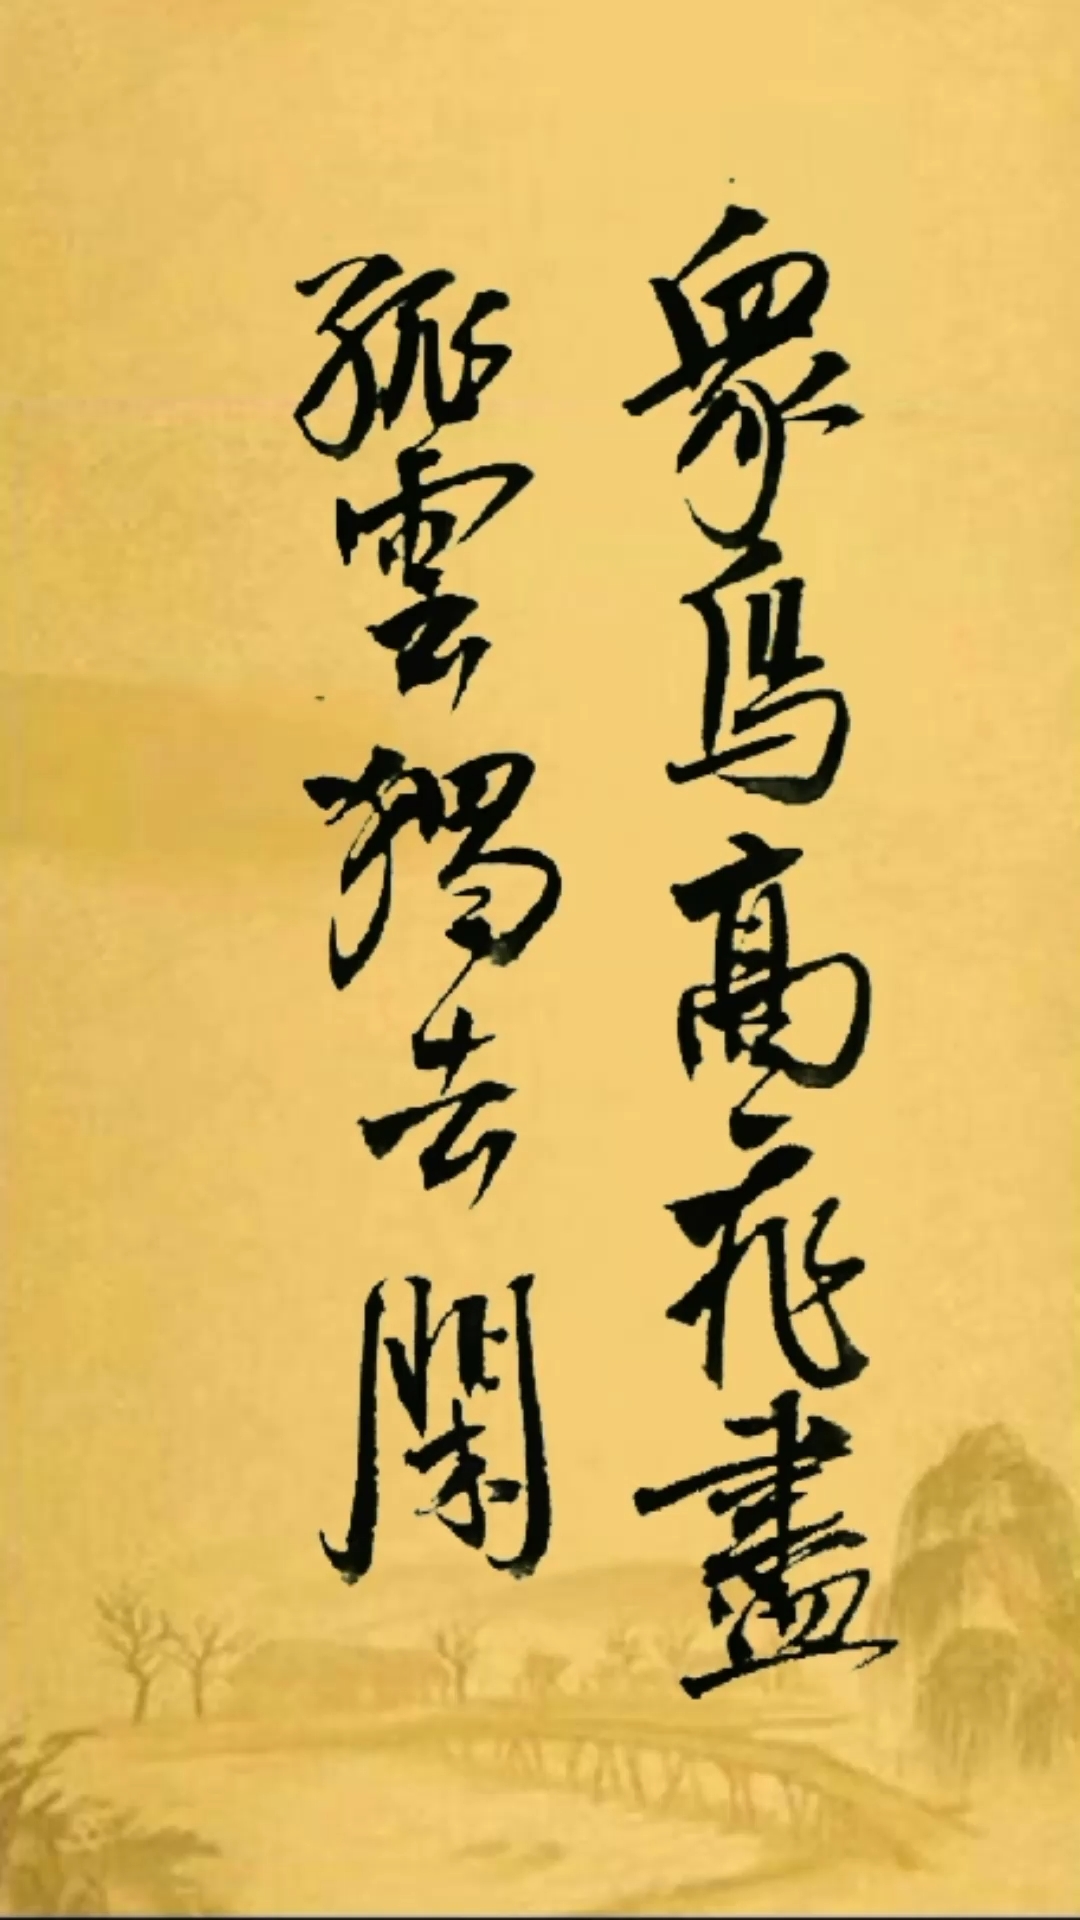 衆鳥高飛盡
孤雲獨去閑